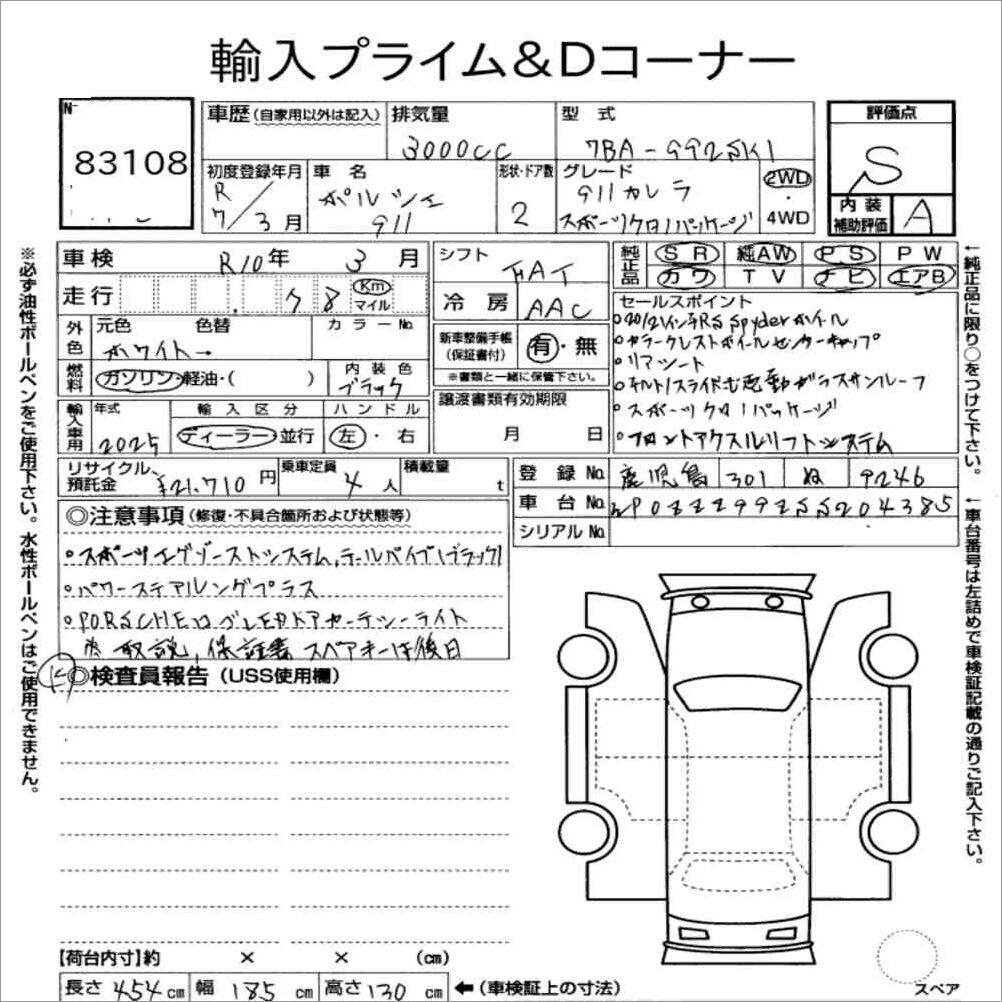 輸入プライム&Dコーナー
No. 83108
車歴 (自家用以外は記入)
排気量 3000cc
型式 7BA-992SK1
評価点 S
初度登録年月 R7/3月
車名 ポルシェ 911
形状・ドア数 2
グレード 911カレラ スポーツクロノパッケージ
2WD・4WD
内装補助評価 A
車検 R10年 3月
走行 78 Km マイル
外色 元色 色替 カラーNo.
ホワイト→
燃料 ガソリン・軽油・( )
内装色 ブラック
輸入車用 年式 2025
輸入区分 ディーラー・並行
ハンドル 左・右
シフト FAT
冷房 AAC
新車整備手帳 (保証書付) 有・無
※書類と一緒に保管下さい。
譲渡書類有効期限
月 日
純正品 SR 純AW PS PW
カワ TV ナビ エアB
セールスポイント
○20/21インチRS Spyderホイール
○カラークレストホイールセンターキャップ
○リアシート
○チルト/スライド電動ガラスサンルーフ
○スポーツクロノパッケージ
○フロントアクスルリフトシステム
リサイクル預託金 ¥21,710円
乗車定員 4人
積載量 t
登録No. 鹿児島 301 ぬ 9246
車台No. WP0ZZZ99ZSS204385
シリアルNo.
◎注意事項 (修復・不具合箇所および状態等)
○スポーツエグゾーストシステム,テールパイプ(ブラック)
○パワーステアリングプラス
○PORSCHEロゴLEDドアカーテシーライト
※取説,保証書 スペアキーは後日
◎検査員報告 (USS使用欄)
【荷台内寸】約 × × (cm)
長さ 454cm 幅 185cm 高さ 130cm ←(車検証上の寸法)
スペア
※必ず油性ボールペンをご使用下さい。水性ボールペンはご使用できません。
←純正品に限り○をつけて下さい。
←車台番号は左詰めで車検証記載の通りご記入下さい。